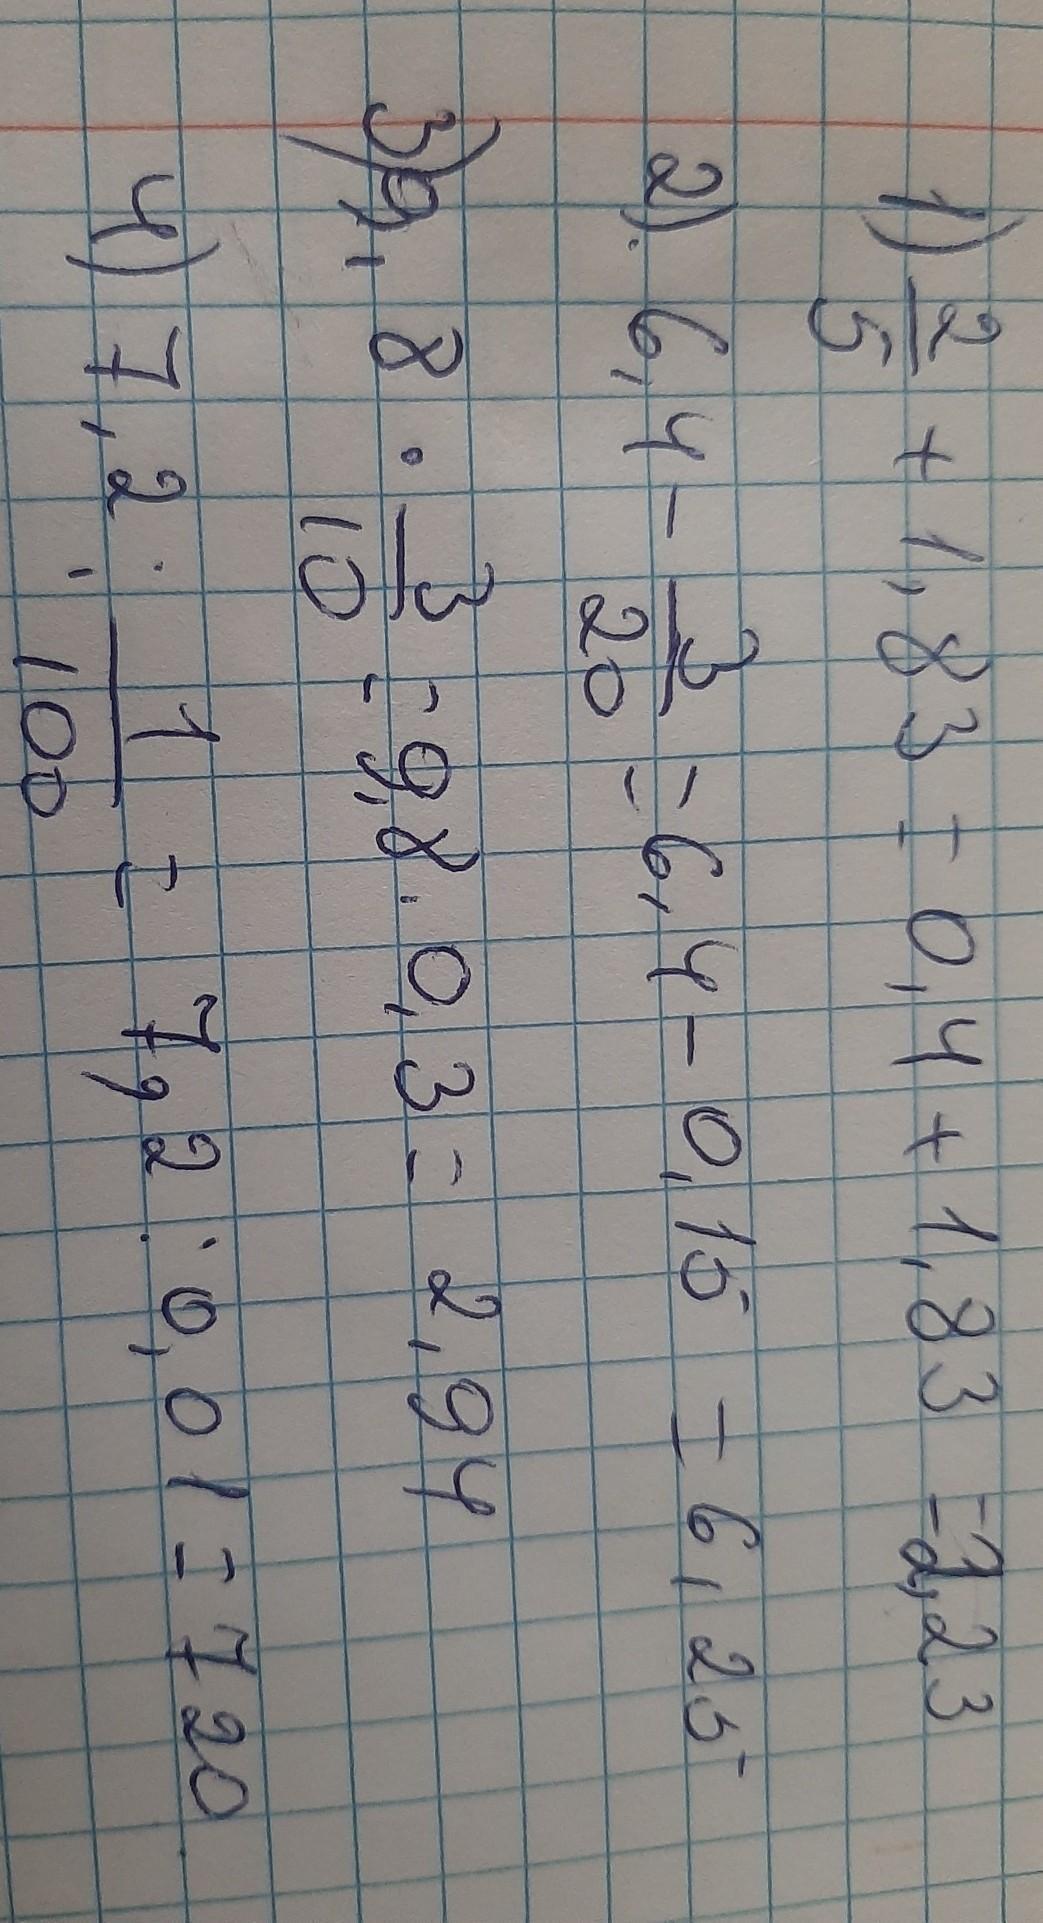 1) 2/5 + 1,83 = 0,4 + 1,83 = 2,23
2). 6,4 - 3/20 = 6,4 - 0,15 = 6,25
3) 9,8 · 3/10 = 9,8 · 0,3 = 2,94
4) 7,2 : 1/100 = 7,2 : 0,01 = 720